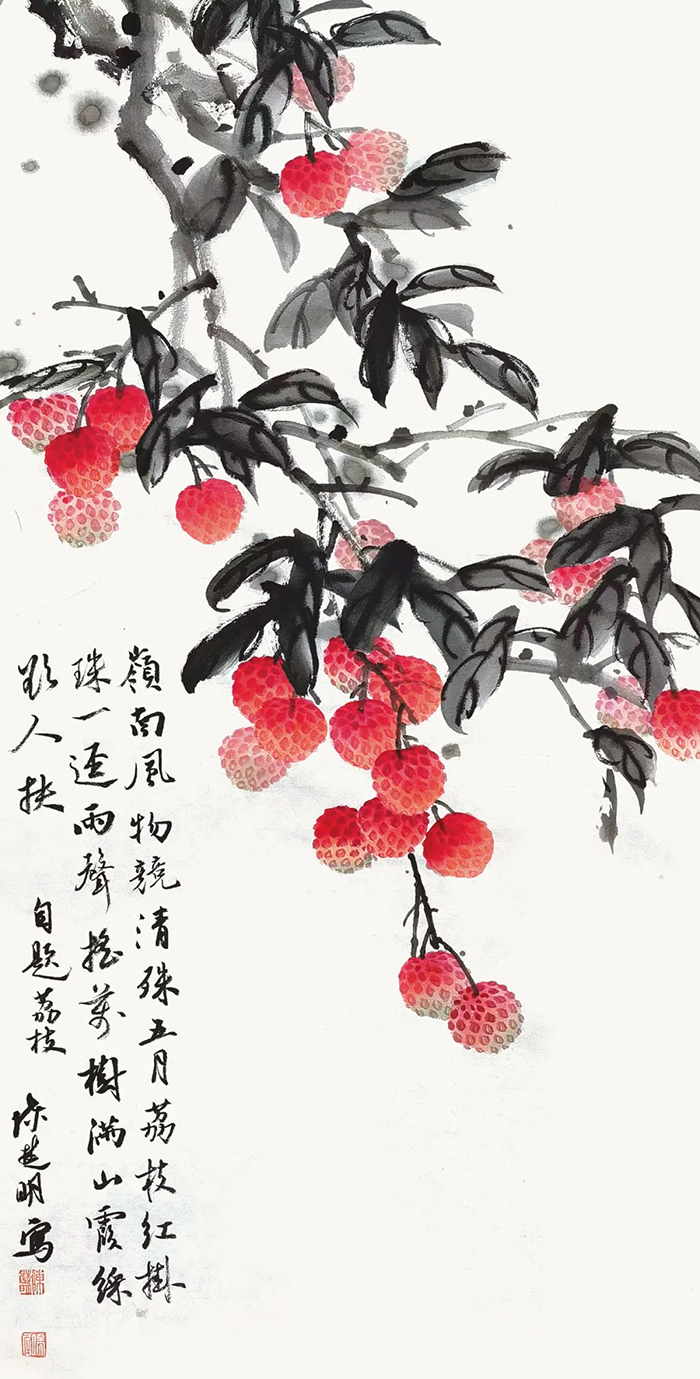 嶺南風物競清殊五月荔枝紅掛
珠一逕雨聲搖萬樹滿山霞綵
欲人扶 自題荔枝 陳楚明寫